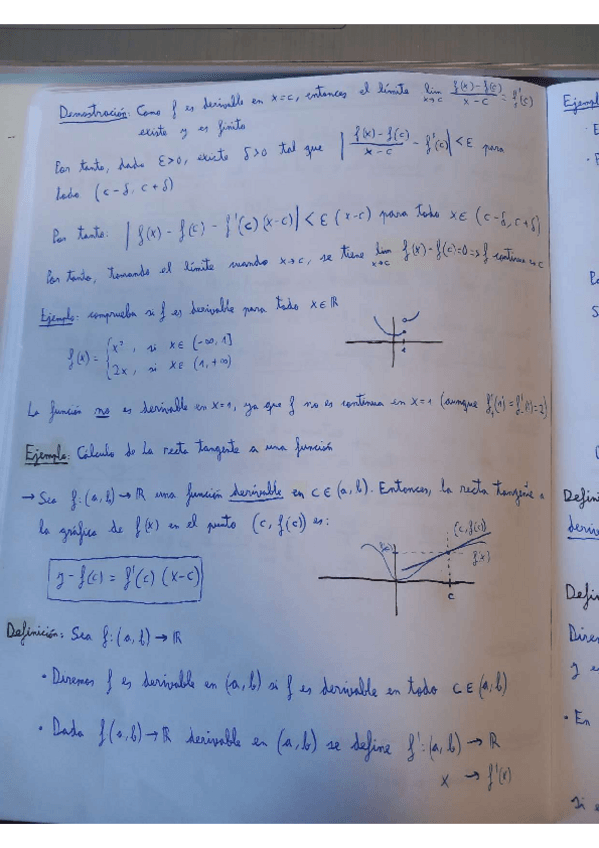 Demostración: Como f es derivable en x=c, entonces el límite lim x→c (f(x)-f(c))/(x-c) = f'(c)
existe y es finito
Por tanto, dado ε>0, existe δ>0 tal que |(f(x)-f(c))/(x-c) - f'(c)| < ε para
todo (c-δ, c+δ)
Por tanto: |f(x) - f(c) - f'(c)(x-c)| < ε(x-c) para todo x∈(c-δ, c+δ)
Por tanto, tomando el límite cuando x→c, se tiene lim x→c f(x)-f(c)=0 => f continua en c
Ejemplo: comprueba si f es derivable para todo x∈ℝ
f(x) = { x², si x∈(-∞,1]
2x, si x∈(1,+∞)
1
La función no es derivable en x=1, ya que f no es continua en x=1 (aunque f'₊(1)=f'₋(1)=2)
Ejemplo: Cálculo de la recta tangente a una función
→ Sea f:(a,b)→ℝ una función derivable en c∈(a,b). Entonces, la recta tangente a
la gráfica de f(x) en el punto (c, f(c)) es:
(c, f(c))
f(x)
c
y - f(c) = f'(c) (x-c)
Definición: Sea f:(a,b)→ℝ
• Diremos f es derivable en (a,b) si f es derivable en todo c∈(a,b)
• Dada f(a,b)→ℝ derivable en (a,b) se define f':(a,b)→ℝ
x → f'(x)
Ejempl
Defini
deriv
Defin
Direm
y e
• En
Si e